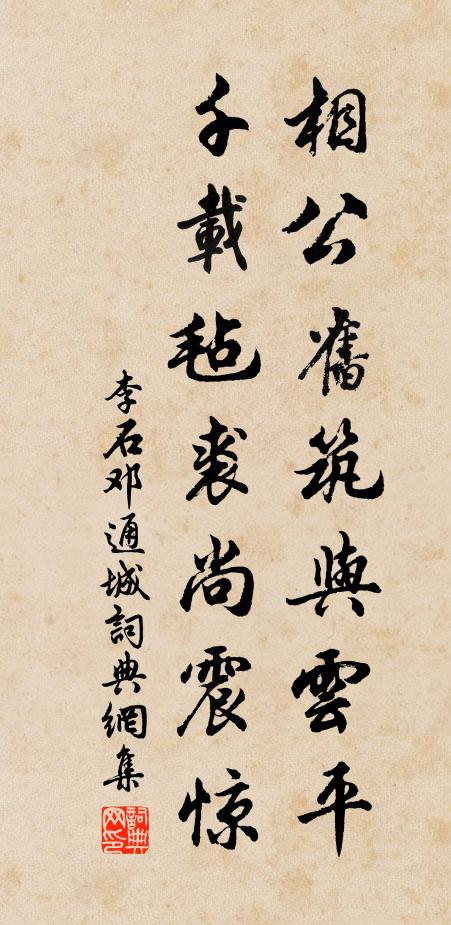 相公舊筑與雲平
千載毡裘尚震惊
李石邓通城詞典網集
詞典网印